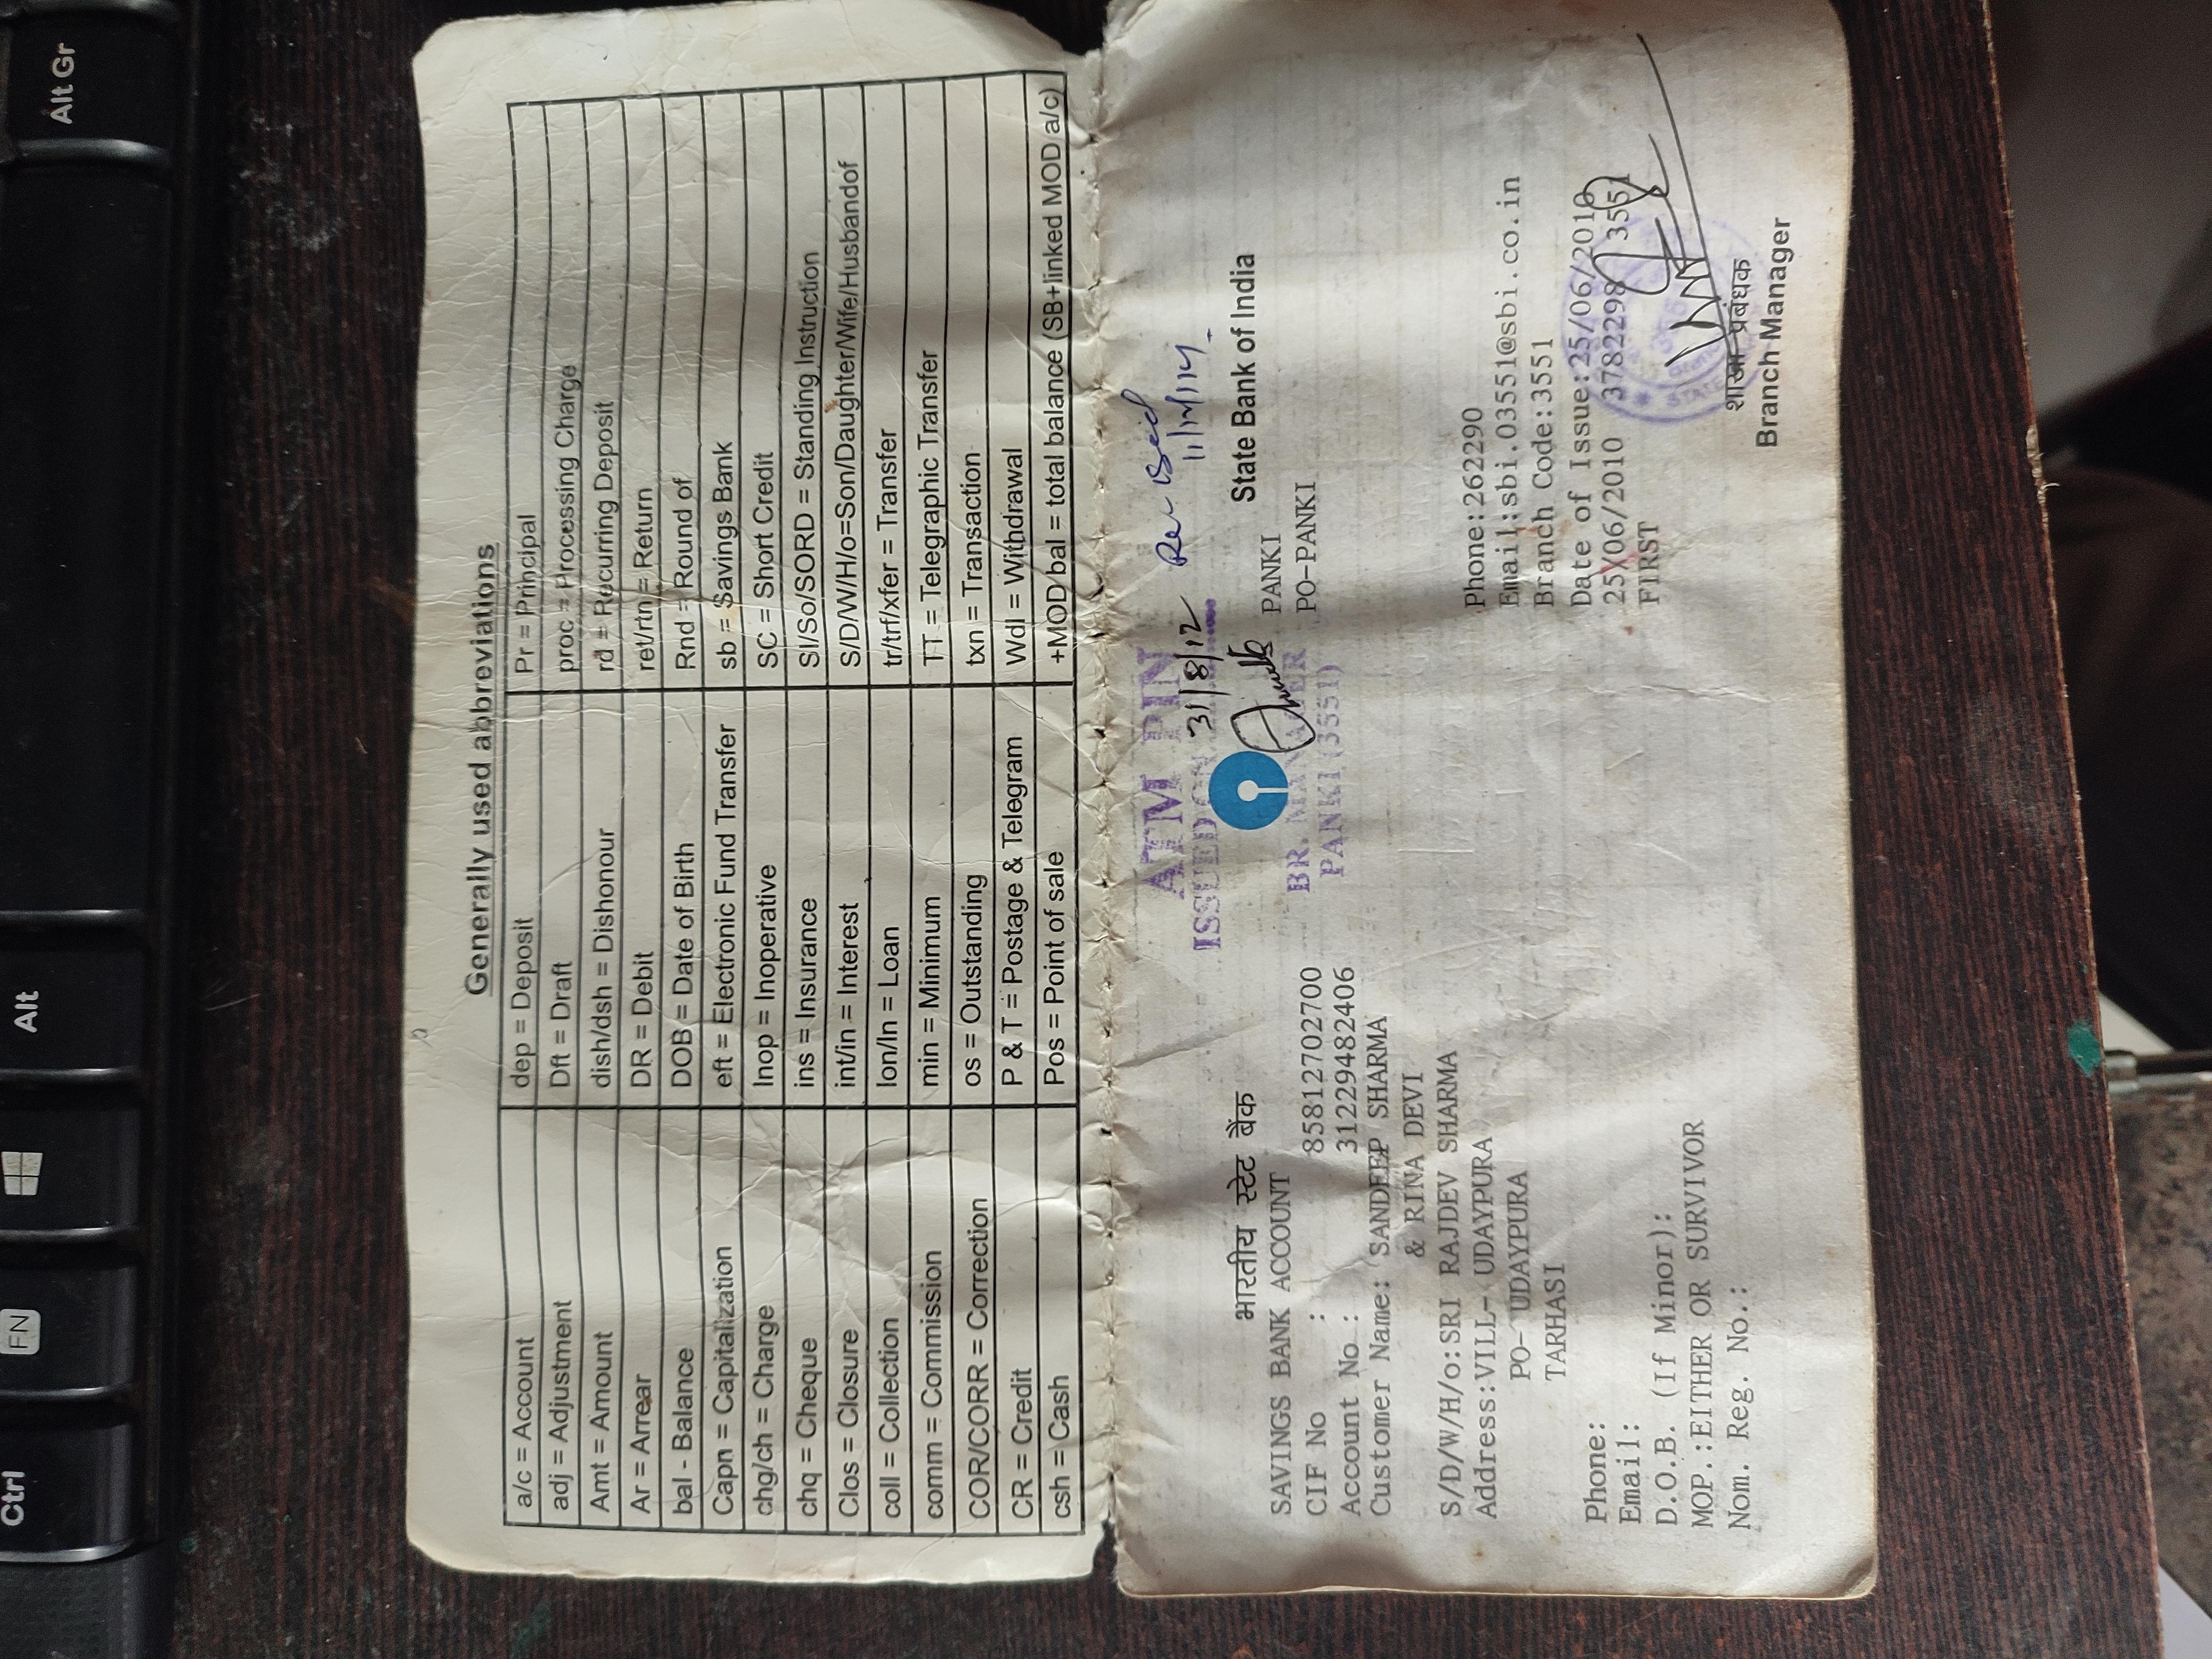 Alt Gr
Alt
FN
Ctrl
Generally used abbreviations
a/c = Account
dep = Deposit
Pr = Principal
adj = Adjustment
Dft = Draft
proc = Processing Charge
Amt = Amount
dish/dsh = Dishonour
rd = Recurring Deposit
Ar = Arrear
DR = Debit
ret/rtn = Return
bal - Balance
DOB = Date of Birth
Rnd = Round of
Capn = Capitalization
eft = Electronic Fund Transfer
sb = Savings Bank
chg/ch = Charge
Inop = Inoperative
SC = Short Credit
chq = Cheque
ins = Insurance
SI/So/SORD = Standing Instruction
Clos = Closure
int/in = Interest
S/D/W/H/o=Son/Daughter/Wife/Husbandof
coll = Collection
lon/ln = Loan
tr/trf/xfer = Transfer
comm = Commission
min = Minimum
TT = Telegraphic Transfer
COR/CORR = Correction
os = Outstanding
txn = Transaction
CR = Credit
P & T = Postage & Telegram
Wdl = Withdrawal
csh = Cash
Pos = Point of sale
+MOD bal = total balance (SB+linked MOD a/c)
ATM PIN
ISSUED ON
31/8/12
BR. MANAGER
PANKI (3551)
भारतीय स्टेट बैंक
State Bank of India
SAVINGS BANK ACCOUNT
PANKI
CIF No : 85812702700
PO-PANKI
Account No : 31229482406
Customer Name: SANDEEP SHARMA
& RINA DEVI
S/D/W/H/o:SRI RAJDEV SHARMA
Phone:262290
Address:VILL- UDAYPURA
Email:sbi.03551@sbi.co.in
PO- UDAYPURA
Branch Code:3551
TARHASI
Date of Issue:25/06/2010
Phone:
25/06/2010 3782298 3551
Email:
FIRST
D.O.B. (If Minor):
MOP.:EITHER OR SURVIVOR
Nom. Reg. No.:
शाखा प्रबंधक
Branch Manager